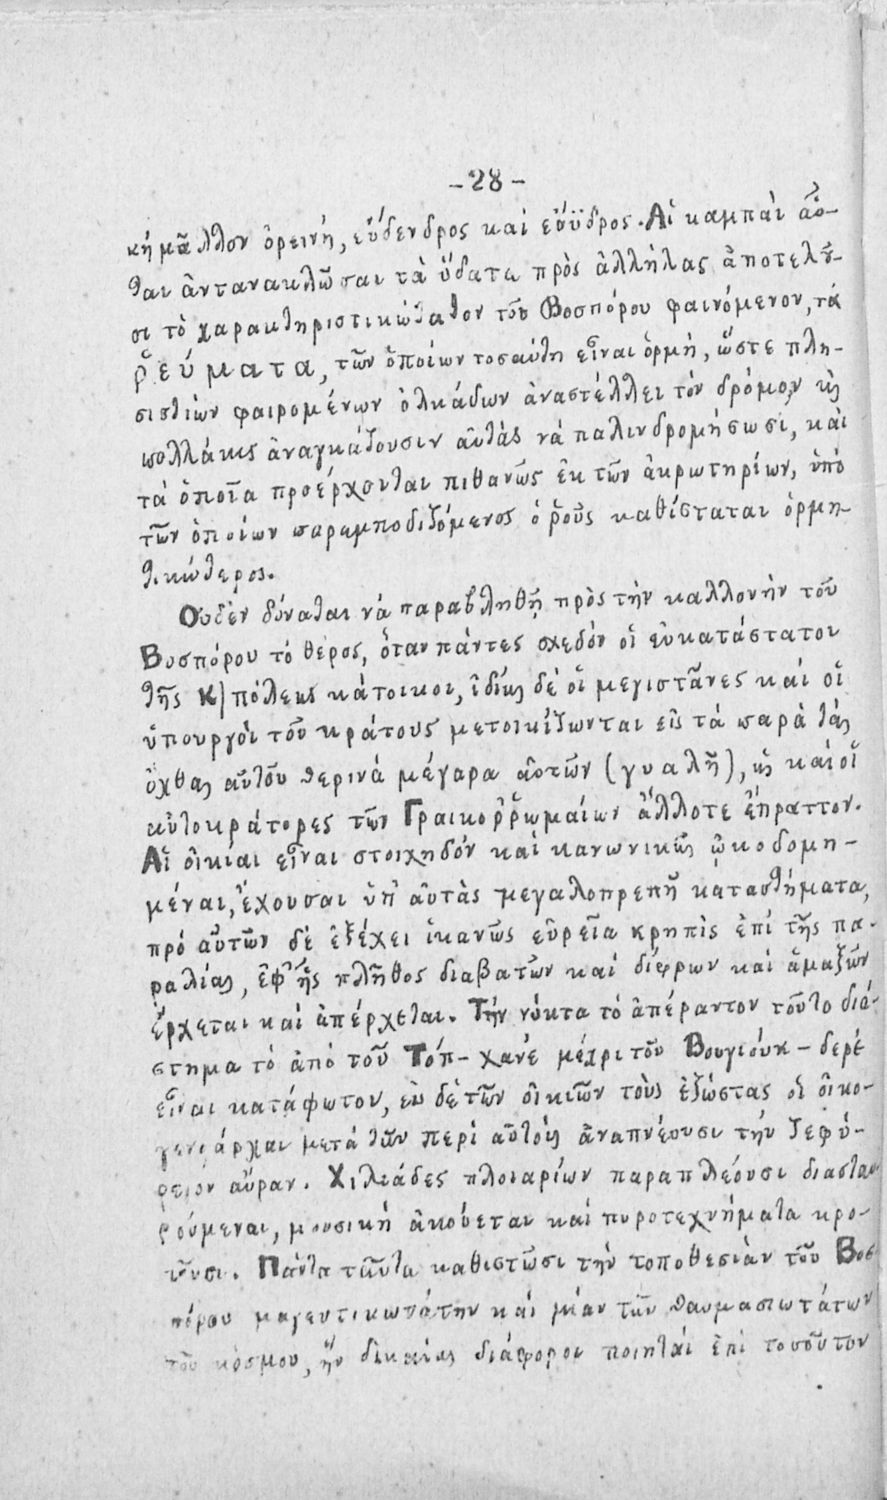 -28-
κή μᾶλλον ὀρεινή, εὔδενδρος καί εὔϋδρος. Αἱ καμπαὶ αὗ-
ται ἀντανακλῶσαι τὰ ὕδατα πρὸς ἀλλήλας ἀποτελοῦ-
σι τὸ χαρακτηριστικώτατον τοῦ Βοσπόρου φαινόμενον, τά
ῥεύματα, τῶν ὁποίων τοσαύτη εἶναι ὁρμή, ὥστε πλη-
σιστίων φαιρομένων ὁλκάδων ἀναστέλλει τόν δρόμον κỳ
πολλάκις ἀναγκάζουσιν αὐτὰς νά παλινδρομήσωσι, καὶ
τά ὁποῖα προέρχονται πιθανῶς ἐκ τῶν ἀκρωτηρίων, ὑπό
τῶν ὁποίων παρεμποδιζόμενος ὁ ῥοῦς καθίσταται ὁρμη-
τικώτερος.
Οὐδέν δύναται νά παραβληθῇ πρὸς τήν καλλονήν τοῦ
Βοσπόρου τό θέρος, ὅταν πάντες σχεδόν οἱ εὐκατάστατοι
τῆς Κ)πόλεως κάτοικοι, ἰδίως δέ οἱ μεγιστᾶνες καί οἱ
ὑπουργοὶ τοῦ κράτους μετοικίζωνται εἰς τά παρὰ τὰς
ὄχθας αὐτοῦ θερινά μέγαρα αὑτῶν (γυαλῆ), ὡς καί οἱ
αὐτοκράτορες τῶν Γραικοῤῥωμαίων ἄλλοτε ἔπραττον.
Αἱ οἰκίαι εἶναι στοιχηδόν καί κανονικῶς ᾠκοδομη-
μέναι, ἔχουσαι ὑπ' αὐτὰς μεγαλοπρεπῆ καταστήματα,
πρό αὐτῶν δέ ἐξέχει ἱκανῶς εὐρεῖα κρηπὶς ἐπί τῆς πα-
ραλίας, ἐφ' ἧς πλῆθος διαβατῶν καί δίφρων καί ἁμαξῶν
ἔρχεται καί ἀπέρχεται. Τήν νύκτα τό ἀπέραντον τοῦτο διά-
στημα τό ἀπό τοῦ Τόπ-χανέ μέχρι τοῦ Βουγιούκ-δερέ
εἶναι κατάφωτον, ἐκ δέ τῶν οἰκιῶν τοὺς ἐξώστας οἱ οἰκο-
γενειάρχαι μετά τῶν περί αὐτοὺς ἀναπνέουσι τήν ζεφύ-
ρειον αὔραν. Χιλιάδες πλοιαρίων παραπλέουσι διασταυ-
ρούμεναι, μουσική ἀκούεται καί πυροτεχνήματα κρο-
τοῦσι. Πάντα ταῦτα καθιστῶσι τήν τοποθεσίαν τοῦ Βοσ-
πόρου μαγευτικωτάτην καί μίαν τῶν θαυμασιωτάτων
τοῦ κόσμου, ἥν δικαίως διάφοροι ποιηταί ἐπί τοσοῦτον